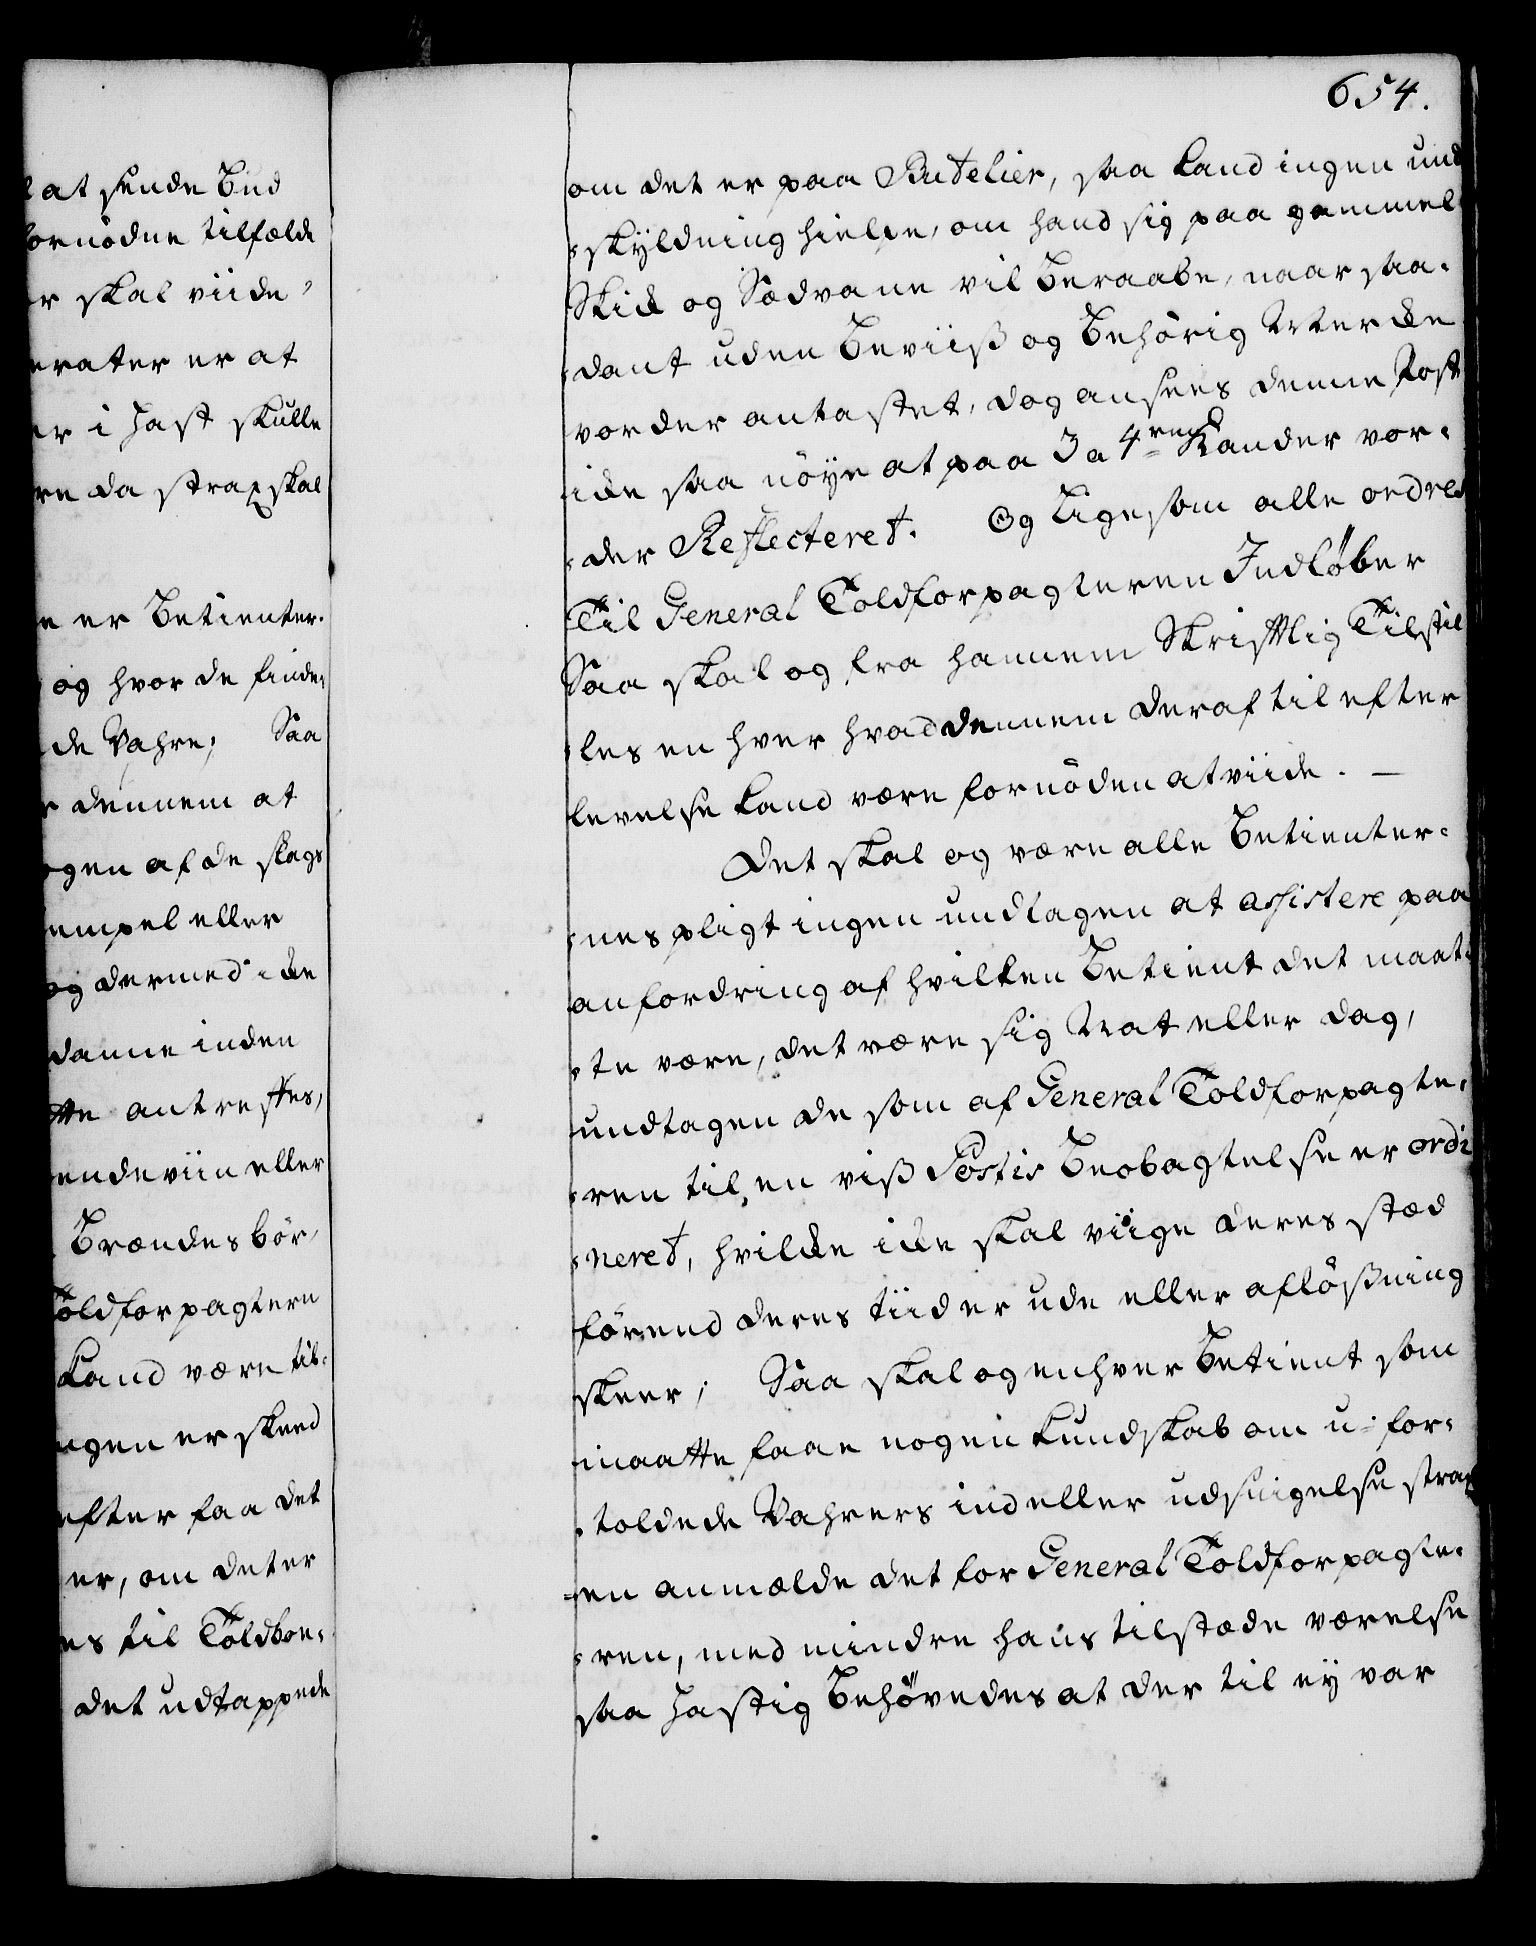 654.
at sende Bud
fornödne tilfælde
skal viide,
erater er at
er i Hast skulle
re da strax skal
er Betienter.
og hvor de finde,
de Vahre; Saa
dennem at
gen af de slags
empel eller
og dermed icke
danne inden
tte antreffes,
endeviin eller
Brændes bör,
Toldforpagtere
Kand være til-
gen er skeed
efter faa det
er, om det er
es til Toldbon-
det udtappede
om det er paa Butelier, saa kand ingen und
-skyldning hielpe, om hand sig paa gammel
Skick og Sædvane vil Beraabe, naar saa-
-dant uden Beviiß og Behörig Mercke
vorder antastet, dog ansees denne Post
icke saa nöye at paa 3 a 4re Kander vor-
-der Reflecteret. Og Ligesom alle ordres
Til General Toldforpagteren Indløber
Saa skal og fra hannem Skriftlig Tilstil
-les en hver hvad dennem deraf til efter
levelse kand være fornöden at viide. —
Det skal og være alle Betienter-
-nes pligt ingen undtagen at assistere paa
anfordring af hvilken Betient det maat-
-te være, det være sig Nat eller dag,
undtagen de som af General Toldforpagte-
-ren til en viß Postis Beobagtelse er ordi
-neret, hvilcke icke skal viige deres stæd
förend deres tiid er ude eller aflößning
skeer; Saa skal og enhver Betient som
maatte faae nogen kundskab om u-for-
-toldede Vahrers ind eller udsnigelse strax
-en anmælde det for General Toldforpagte-
-ren, med mindre hans tilstæde værelse
saa Hastig Behövedes at der til ey var